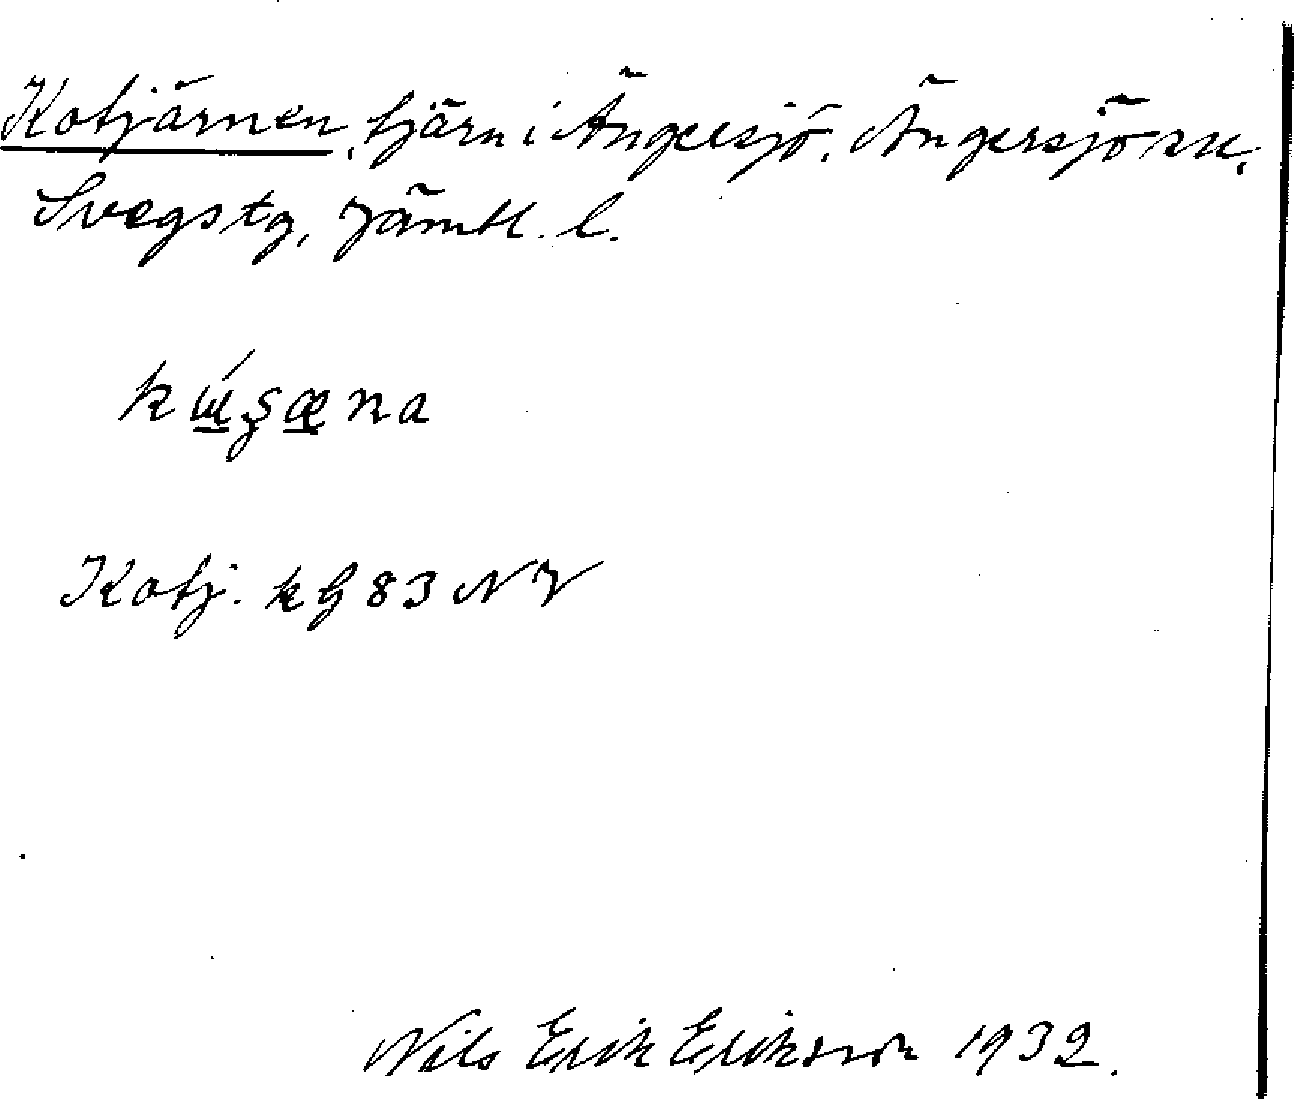 Kotjärnen, tjärn i Ängersjö, Ängersjö sn,
Svegs tg, Jämtl. l.
Kotj. kg 83 NV
Nils Erik Eriksson 1932.